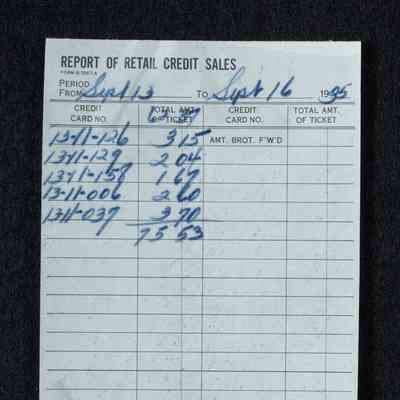 REPORT OF RETAIL CREDIT SALES
FORM
PERIOD
FROM Sept 13 TO Sept 16 1935
62 37
CREDIT CARD NO. TOTAL AMT. OF TICKET CREDIT CARD NO. TOTAL AMT. OF TICKET
13-11-126 3 15 AMT. BROT. F'W'D
13-11-129 2 04
13-11-158 1 67
13-11-006 2 60
13-11-037 3 70
75 53